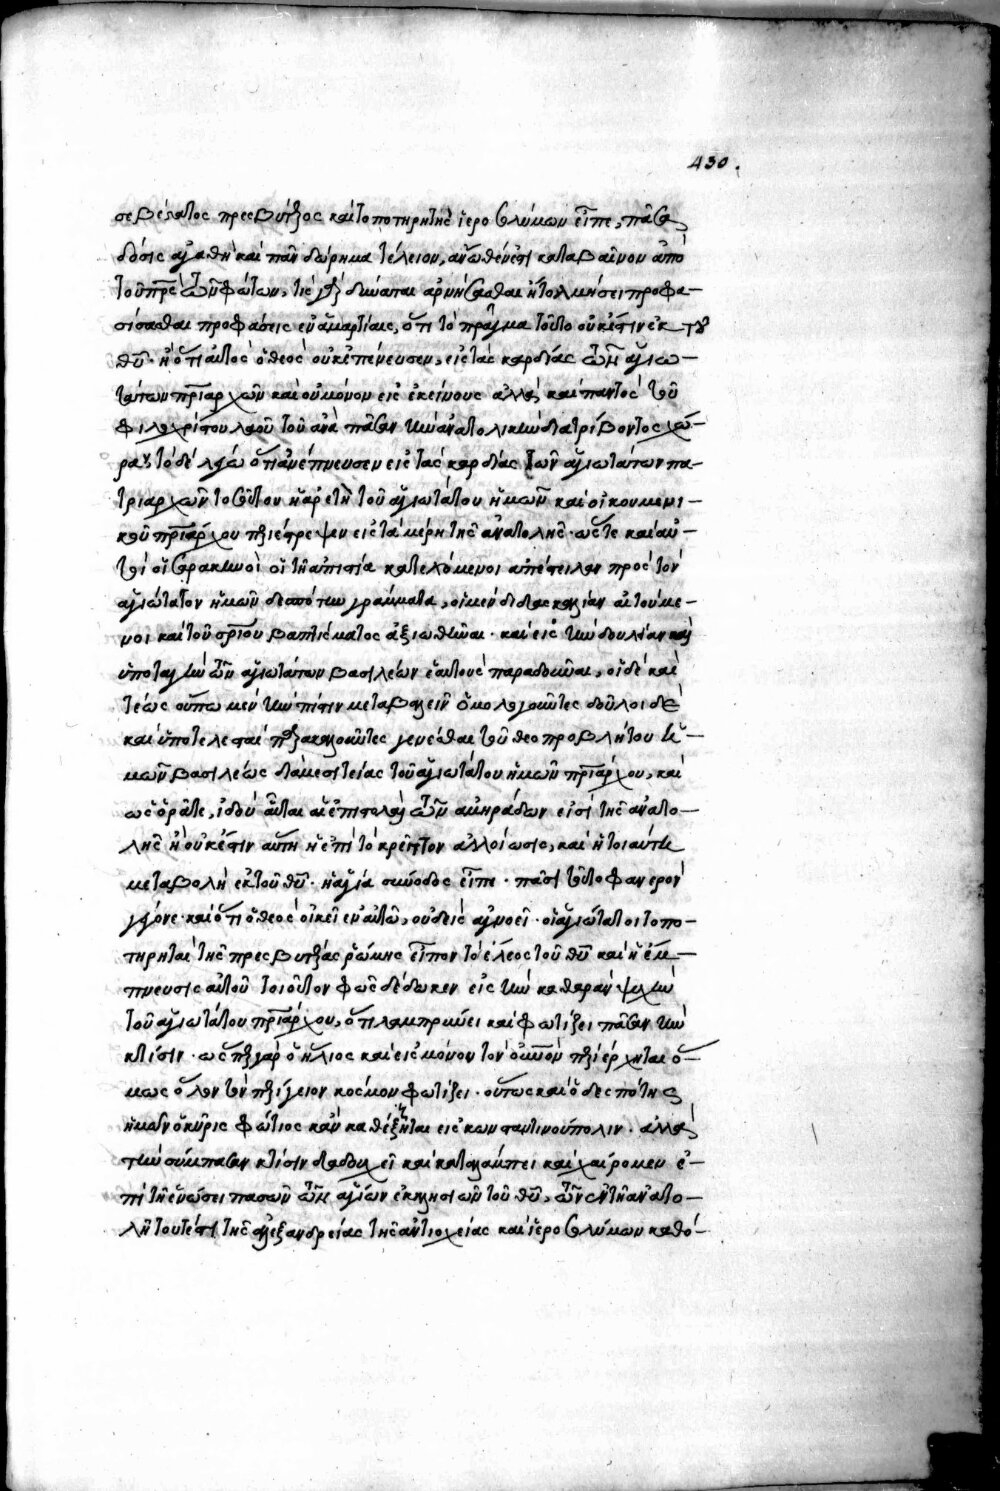 430.
σεβέστατος πρεσβύτερος καὶ τοποτηρητὴς ἱεροσολύμων εἶπε, πᾶσα
δόσις ἀγαθὴ καὶ πᾶν δώρημα τέλειον, ἄνωθέν ἐστι καταβαῖνον ἀπὸ
τοῦ πρς τῶν φώτων, τίς γὰρ δύναται ἀρνήσασθαι ἢ τολμήσει προφα–
σίσασθαι προφάσεις ἐν ἁμαρτίαις, ὅτι τὸ πρᾶγμα τοῦτο οὐκ ἔστιν ἐκ τοῦ
θυ· ἢ ὅτι αὐτὸς ὁ θεὸς οὐκ ἐπένευσεν, εἰς τὰς καρδίας τῶν ἁγιω–
τάτων πριαρχῶν καὶ οὐ μόνον εἰς ἐκείνους ἀλλὰ καὶ παντὸς τοῦ
φιλοχρίστου λαοῦ τοῦ ἀνὰ πᾶσαν τὴν ἀνατολικὴν διατρίβοντος χώ–
ραν τὸ δὲ λέγω ὅτι ἀνέπνευσεν εἰς τὰς καρδίας τῶν ἁγιωτάτων πα–
τριαρχῶν τοσοῦτον ἡ ἀρετὴ τοῦ ἁγιωτάτου ἡμῶν καὶ οἰκουμενι–
κοῦ πριάρχου περιέστρεψεν εἰς τὰ μέρη τῆς ἀνατολῆς· ὥστε καὶ αὐ–
τοὶ οἱ σαρακηνοὶ οἱ τῇ ἀπιστίᾳ κατεχόμενοι ἀπέστειλαν πρὸς τὸν
ἁγιώτατον ἡμῶν δεσπότην γράμματα, οἱ μὲν διδασκαλίαν αἰτούμε–
νοι καὶ τοῦ σριου βαπτίσματος ἀξιωθῆναι· καὶ εἰς τὴν δουλείαν καὶ
ὑποταγὴν τῶν ἁγιωτάτων βασιλέων ἑαυτοὺς παραδοῦναι, οἱ δὲ καὶ
τέως οὔπω μὲν τὴν πίστιν μεταβαλεῖν ὁμολογοῦντες δοῦλοι δὲ
καὶ ὑποτελεσταὶ παρακαλοῦντες γενέσθαι τοῦ θεοπροβλήτου ἡ–
μῶν βασιλέως διὰ μεσιτείας τοῦ ἁγιωτάτου ἡμῶν πριάρχου, καὶ
ὡς ὁρᾶτε, ἰδοὺ αὗται αἱ ἐπιστολαὶ τῶν ἀμηράδων εἰσὶ τῆς ἀνατο–
λῆς ἢ οὐκ ἔστιν αὕτη ἡ ἐπὶ τὸ κρεῖττον ἀλλοίωσις, καὶ ἡ τοιαύτη
μεταβολὴ ἐκ τοῦ θυ· ἡ ἁγία σύνοδος εἶπε· πᾶσι τοῦτο φανερὸν
γέγονε· καὶ ὅτι ὁ θεὸς οἰκεῖ ἐν αὐτῷ, οὐδεὶς ἀγνοεῖ· οἱ ἁγιώτατοι τοπο–
τηρηταὶ τῆς πρεσβυτέρας ῥώμης εἶπον τὸ ἔλεος τοῦ θυ καὶ ἡ ἔμ–
πνευσις αὐτοῦ τοιοῦτον φῶς δέδωκεν εἰς τὴν καθαρὰν ψυχὴν
τοῦ ἁγιωτάτου πριάρχου, ὅτι λαμπρύνει καὶ φωτίζει πᾶσαν τὴν
κτίσιν· ὥσπερ γὰρ ὁ ἥλιος καὶ εἰς μόνον τὸν οὐνὸν περιέρχηται ὅ–
μως ὅλον τὸν περίγειον κόσμον φωτίζει· οὕτως καὶ ὁ δεσπότης
ἡμῶν ὁ κύρις φώτιος κἂν καθέζηται εἰς κωνσταντινούπολιν· ἀλλὰ
τὴν σύμπασαν κτίσιν δᾳδουχεῖ καὶ καταλάμπει καὶ χαίρομεν ἐ–
πὶ τῇ ἑνώσει πασῶν τῶν ἁγίων ἐκκλησιῶν τοῦ θυ, τῶν ἐν τῇ ἀνατο–
λῇ τουτέστι τῆς ἀλεξανδρείας τῆς ἀντιοχείας καὶ ἱεροσολύμων καθό–